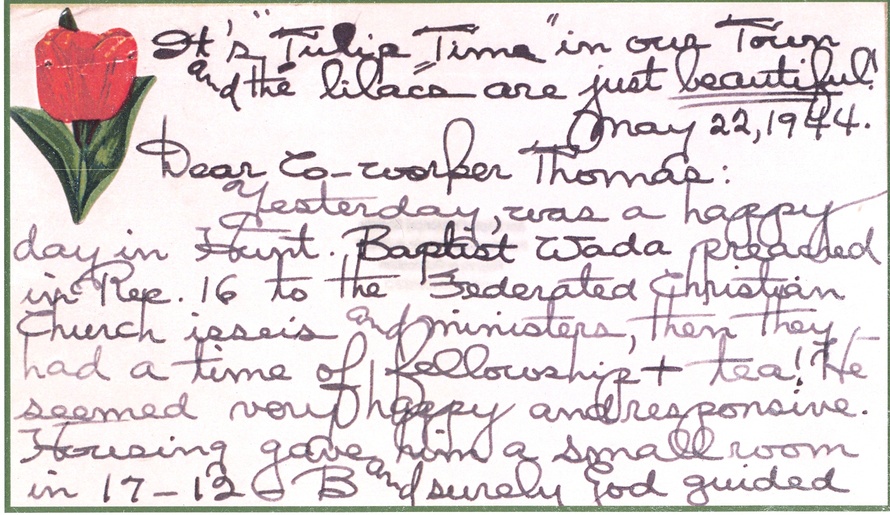 It's "Tulip Time" in our Town
and the lilacs are just beautiful!
May 22, 1944.
Dear Co-worker Thomas:
Yesterday, was a happy
day in Hunt. Baptist Wada preached
in Rec. 16 to the Federated Christian
Church isseis and ministers, then they
had a time of fellowship + tea! He
seemed very happy and responsive.
Housing gave him a small room
in 17-12 B and surely God guided